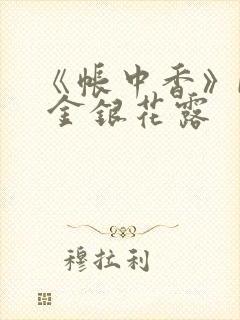 《帳中香》
金銀花露
穆拉利